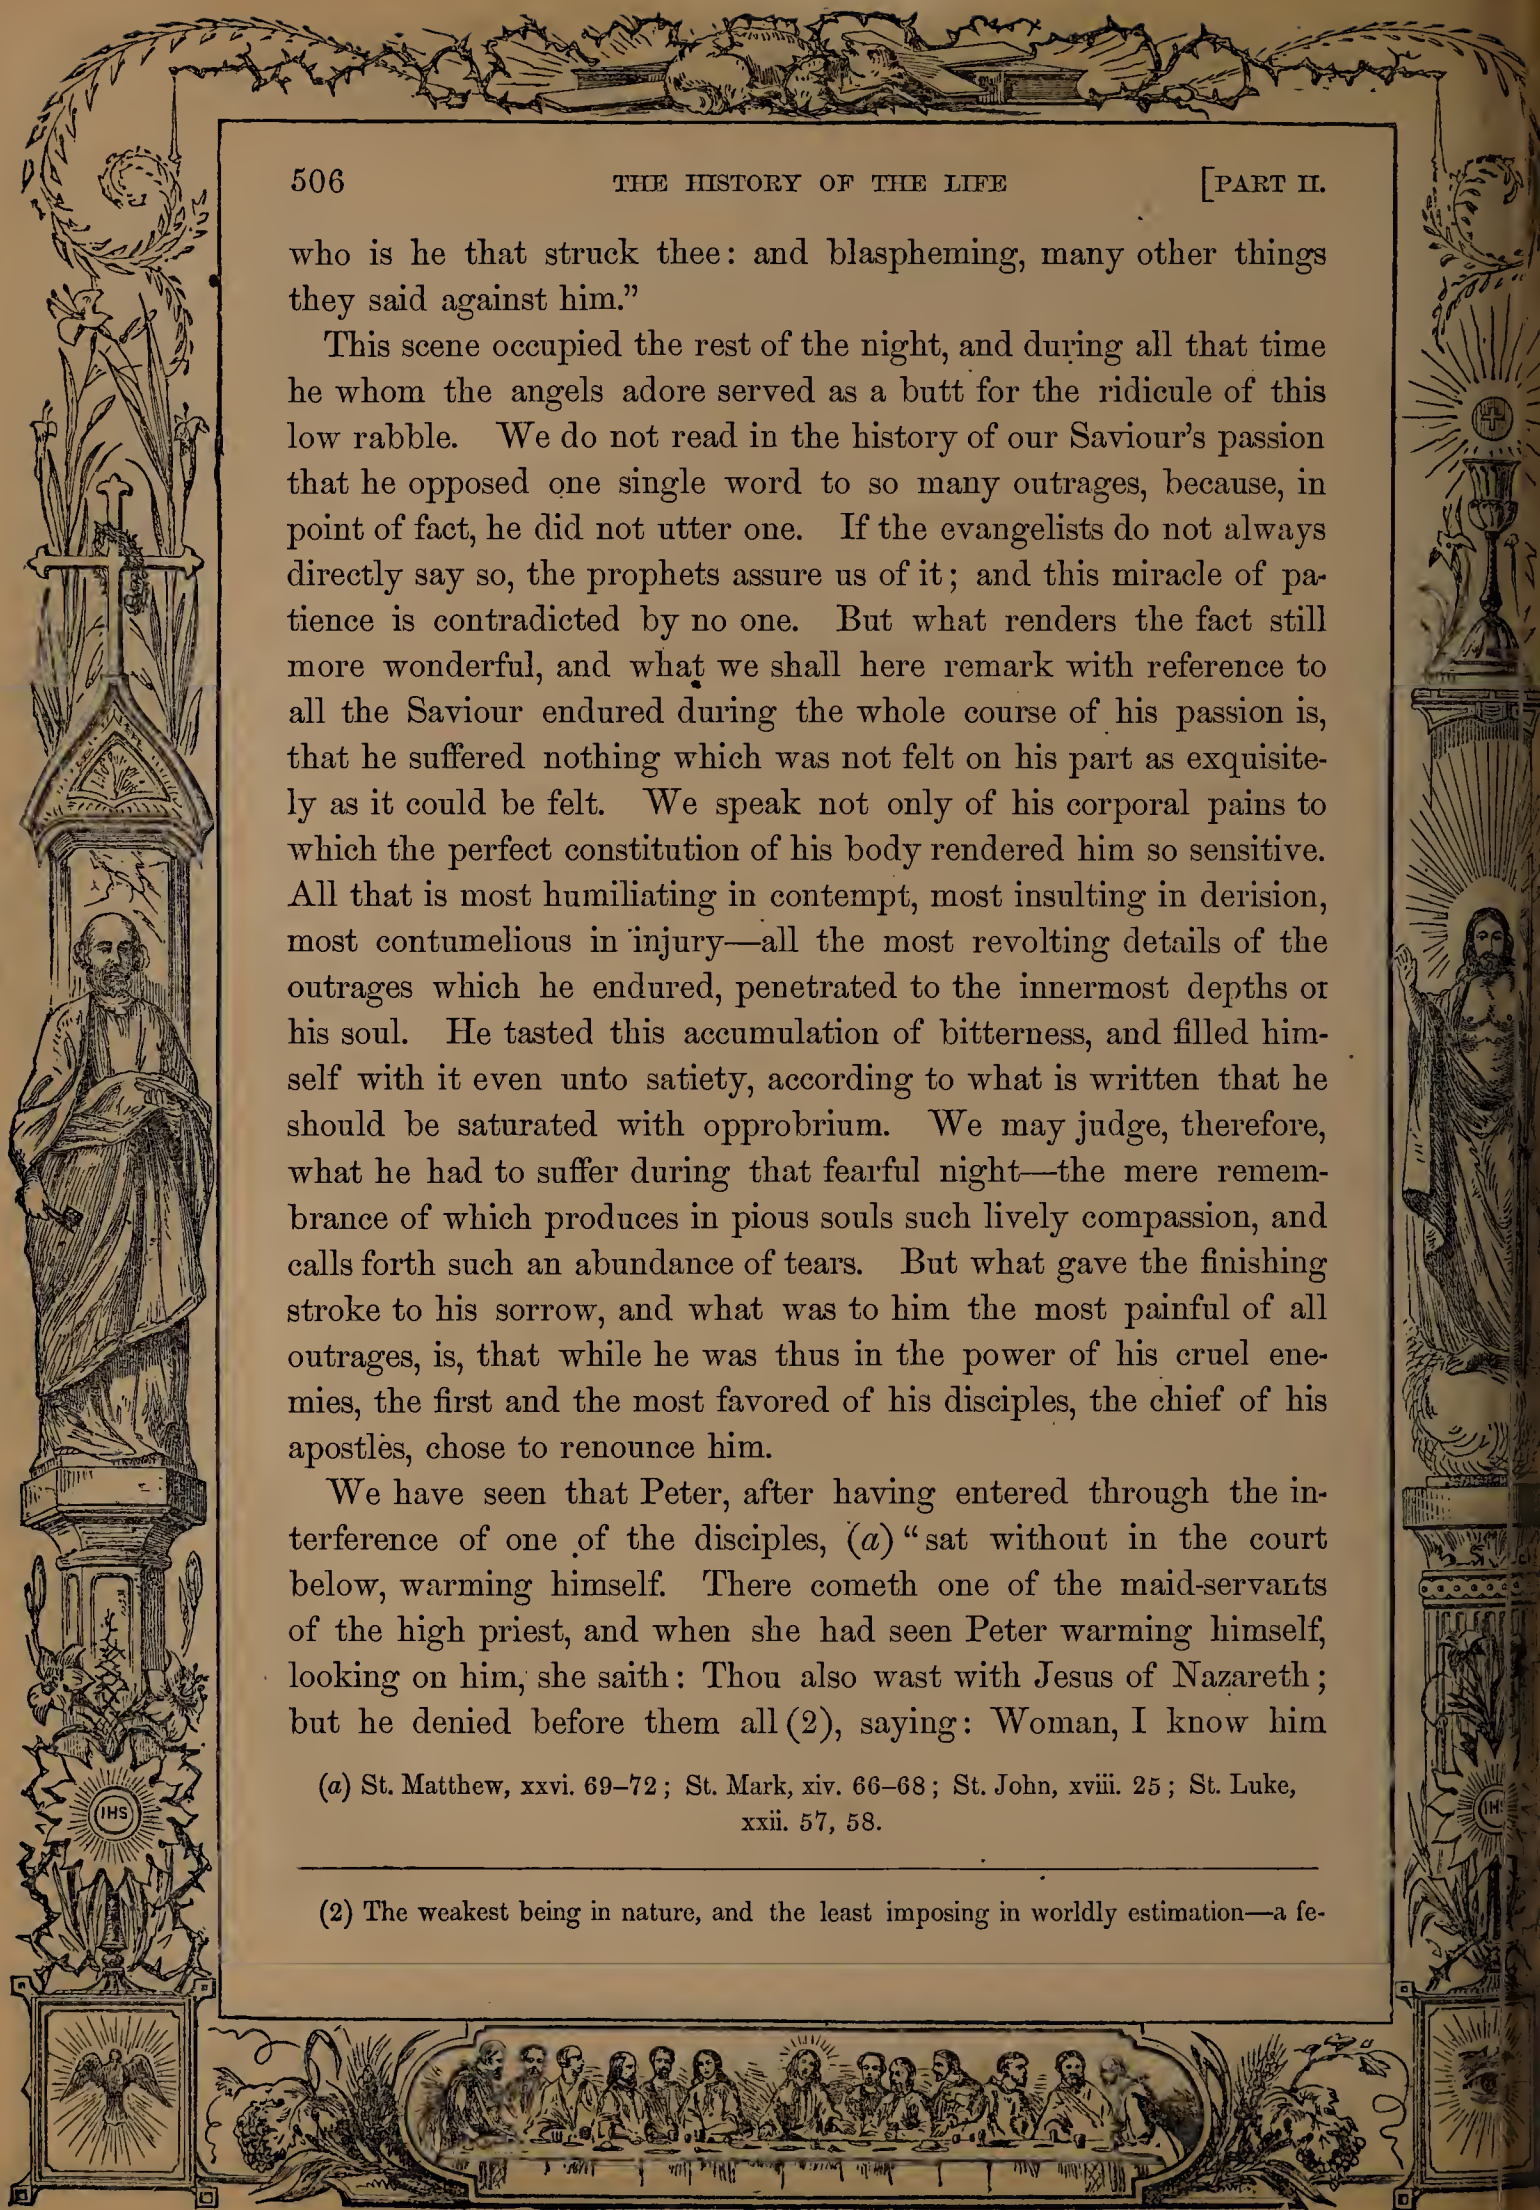 506 THE HISTORY OF THE LIFE [PART II.
who is he that struck thee: and blaspheming, many other things
they said against him.”
This scene occupied the rest of the night, and during all that time
he whom the angels adore served as a butt for the ridicule of this
low rabble. We do not read in the history of our Saviour’s passion
that he opposed one single word to so many outrages, because, in
point of fact, he did not utter one. If the evangelists do not always
directly say so, the prophets assure us of it; and this miracle of pa-
tience is contradicted by no one. But what renders the fact still
more wonderful, and what we shall here remark with reference to
all the Saviour endured during the whole course of his passion is,
that he suffered nothing which was not felt on his part as exquisite-
ly as it could be felt. We speak not only of his corporal pains to
which the perfect constitution of his body rendered him so sensitive.
All that is most humiliating in contempt, most insulting in derision,
most contumelious in injury—all the most revolting details of the
outrages which he endured, penetrated to the innermost depths or
his soul. He tasted this accumulation of bitterness, and filled him-
self with it even unto satiety, according to what is written that he
should be saturated with opprobrium. We may judge, therefore,
what he had to suffer during that fearful night—the mere remem-
brance of which produces in pious souls such lively compassion, and
calls forth such an abundance of tears. But what gave the finishing
stroke to his sorrow, and what was to him the most painful of all
outrages, is, that while he was thus in the power of his cruel ene-
mies, the first and the most favored of his disciples, the chief of his
apostles, chose to renounce him.
We have seen that Peter, after having entered through the in-
terference of one of the disciples, (a) “sat without in the court
below, warming himself. There cometh one of the maid-servants
of the high priest, and when she had seen Peter warming himself,
looking on him, she saith: Thou also wast with Jesus of Nazareth;
but he denied before them all (2), saying: Woman, I know him
(a) St. Matthew, xxvi. 69–72; St. Mark, xiv. 66–68; St. John, xviii. 25; St. Luke,
xxii. 57, 58.
(2) The weakest being in nature, and the least imposing in worldly estimation—a fe-
IHS
IHS